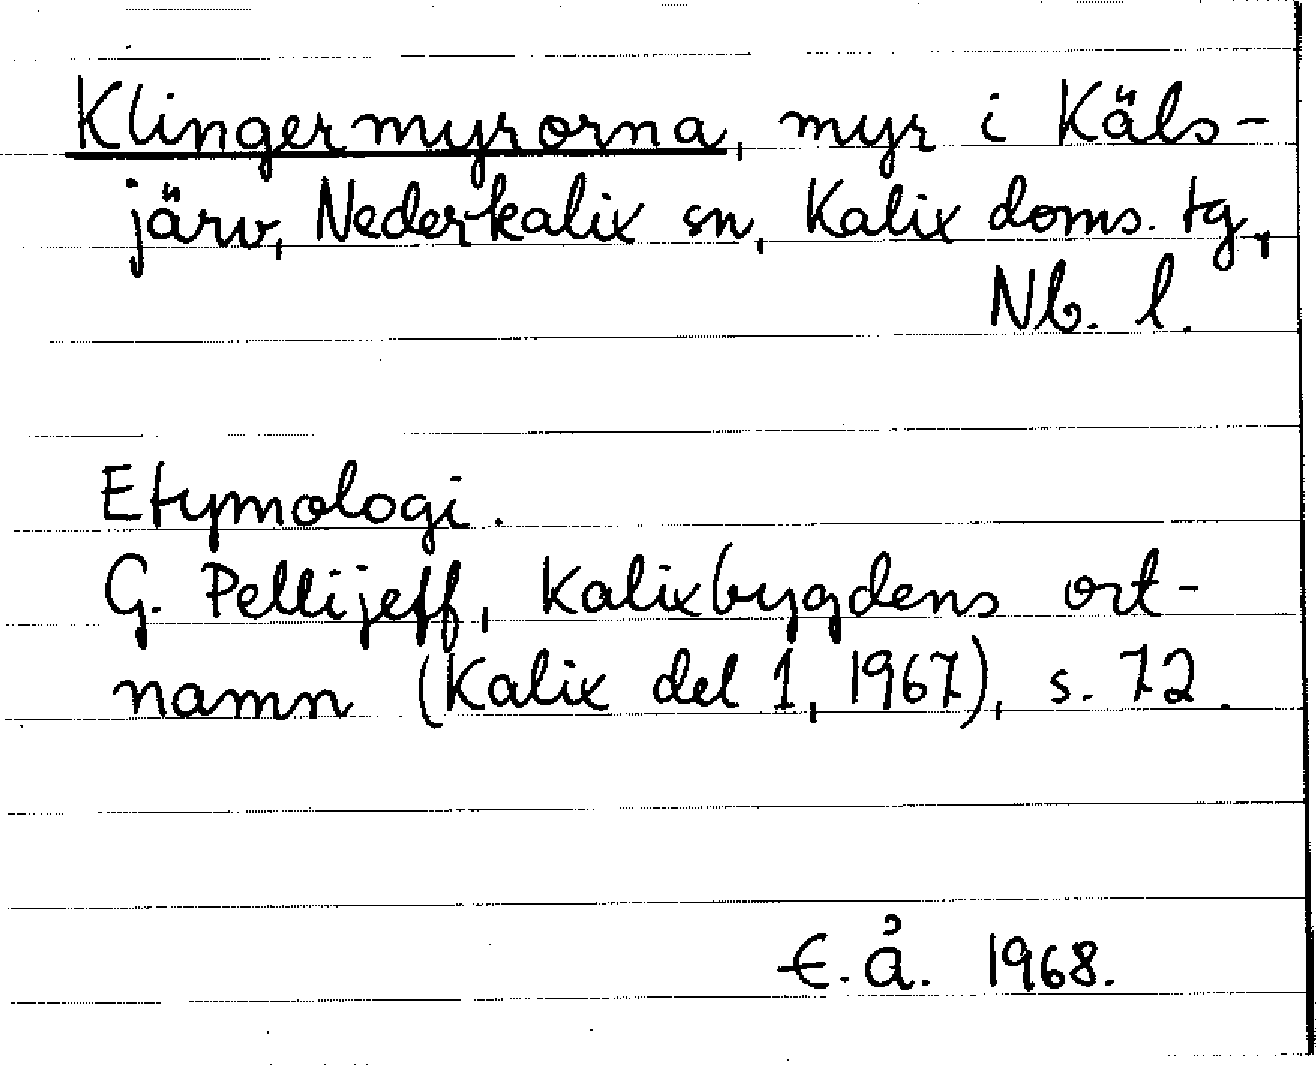 Klingermyrorna, myr i Käls-
järv, Nederkalix sn, Kalix doms. tg,
Nb. l.
Etymologi.
G. Pellijeff, Kalixbygdens ort-
namn (Kalix del 1, 1967), s. 72.
E. Å. 1968.